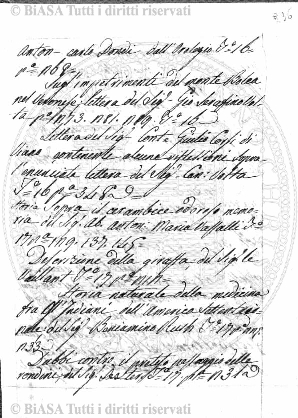 © BIASA Tutti i diritti riservati
230
Anton- carlo Dondi dall' Orologio T.º 16
p.ª n. 68
Sugl' impietrimenti del monte Bolca
nel Veronese; lettera del Sig.r Gio Serafino Volta
p.ª n. 73. n. 81. n. 89. T.º 16
Lettera del Sig.r Conte Giulio di
Viano contenente alcune riflessioni sopra
l'enunciata lettera del Sig.r Can. Volta
T.º 16 p.ª
storia sopra il cerambice odoroso memo-
ria del Sig. Ab. Anton. Maria Vassalli T.º
17 n. 129. 137. 145
Descrizione della giraffa, del Sig. le
Vaillant T.º 17 p.ª n.
Storia naturale della medicina
fra gl' Indiani nell' America settentrio-
nale del Sig.r Beniamino Rush T.º 17 p.ª n.
n. 33
Dubbi contro il preteso passaggio delle
rondini del Sig. T.º 17 p.ª n. 312
© BIASA Tutti i diritti riservati